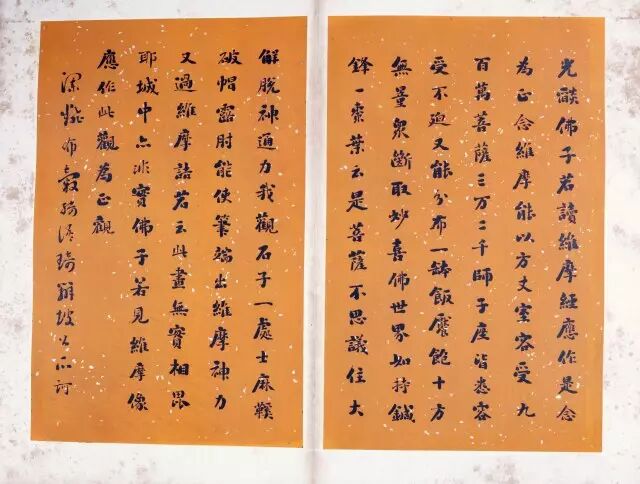 光談佛子若讀維摩經應作是念
為正念維摩能以方丈室容受九
百萬菩薩三万二千師子座皆悉容
受不迫又能分布一鉢飯饜飽十方
無量眾斷取妙喜佛世界如持鍼
鋒一棗葉云是菩薩不思議住大
解脫神通力我觀石子一處士麻鞵
破帽露肘能使筆端出維摩神力
又過維摩詰若云此畫無實相毘
耶城中亦非實佛子若見維摩像
應作此觀為正觀